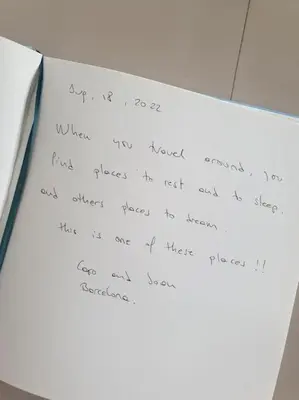 Aug, 18, 2022
When you travel around, you
find places to rest and to sleep,
and others places to dream.
this is one of these places !!
Caro and Joan
Barcelona.